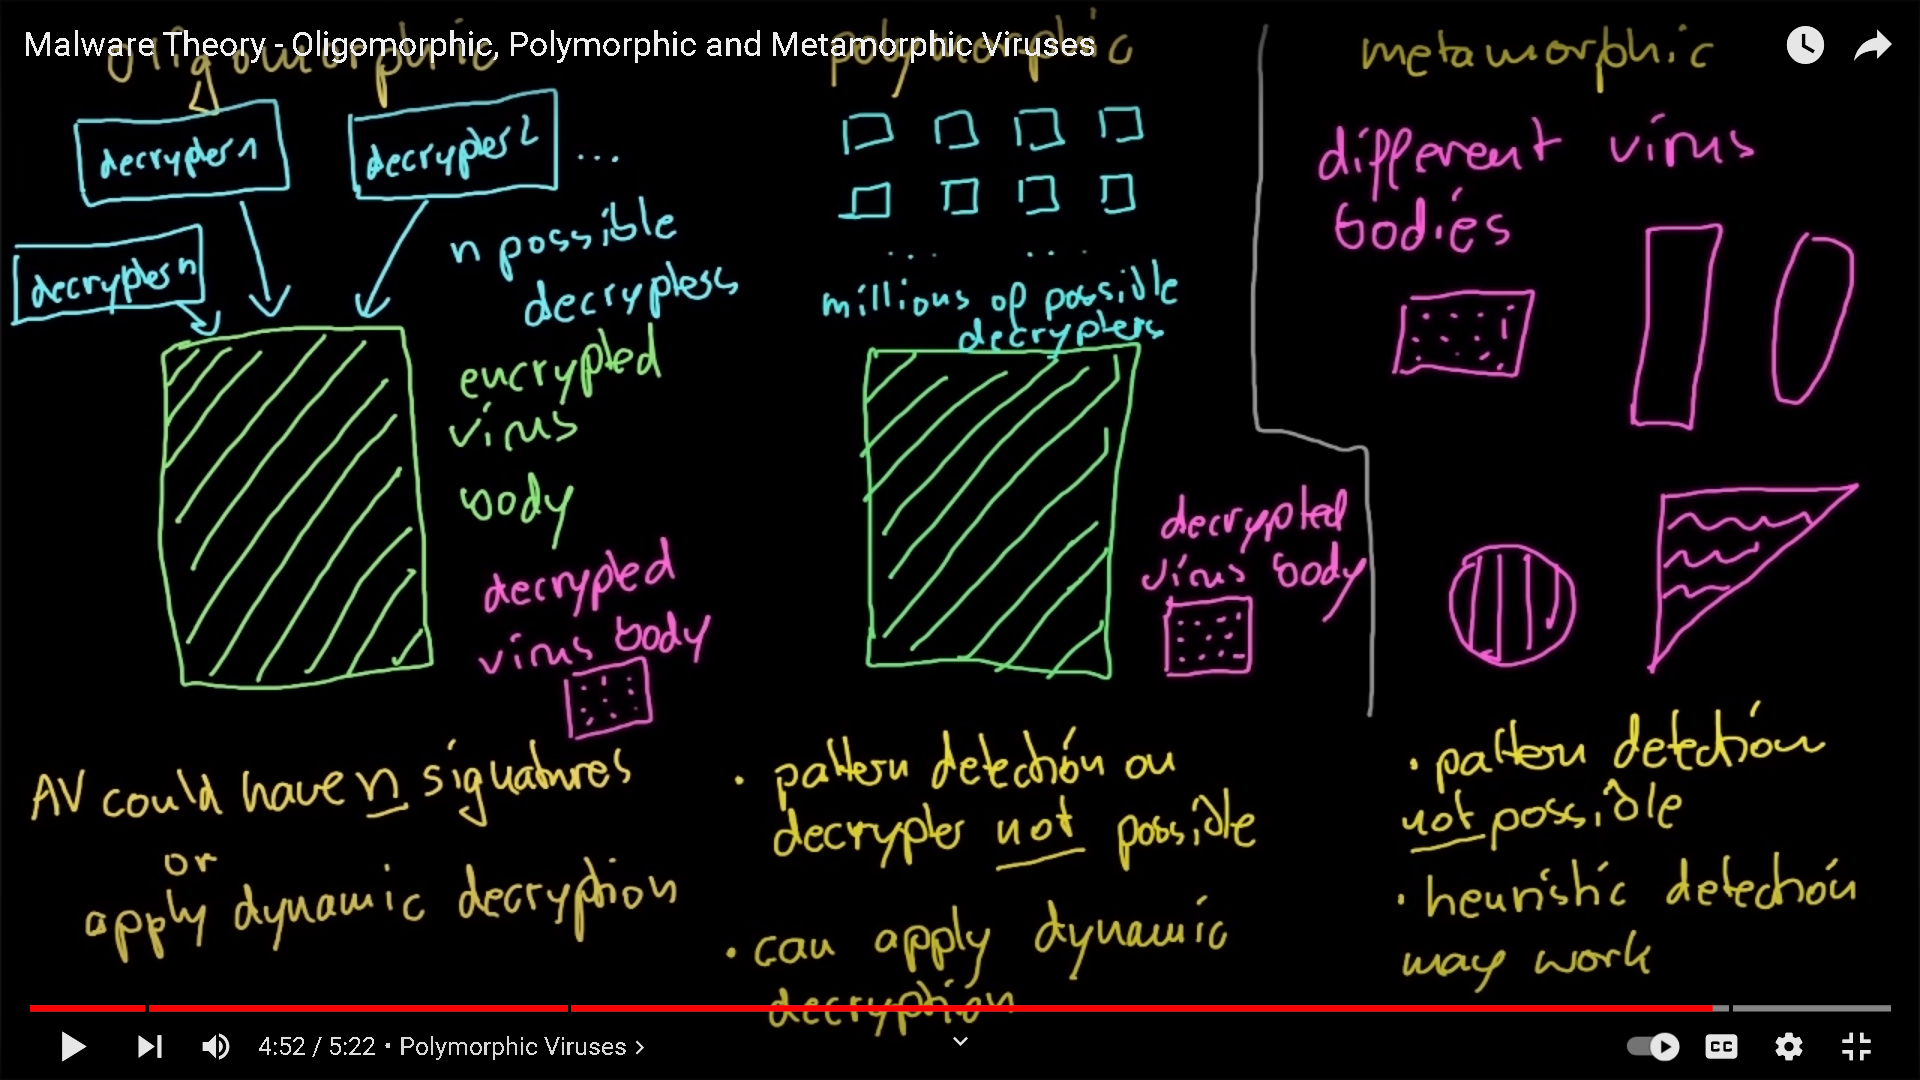 Malware Theory - Oligomorphic, Polymorphic and Metamorphic Viruses
oligomorphic
decrypter 1
decrypter 2
...
decrypter n
n possible
decrypters
encrypted
virus
body
decrypted
virus body
AV could have n signatures
or
apply dynamic decryption
polymorphic
... ...
millions of possible
decrypters
decrypted
virus body
• pattern detection on
decrypter not possible
• can apply dynamic
decryption
metamorphic
different virus
bodies
• pattern detection
not possible
• heuristic detection
may work
4:52 / 5:22 • Polymorphic Viruses >
CC